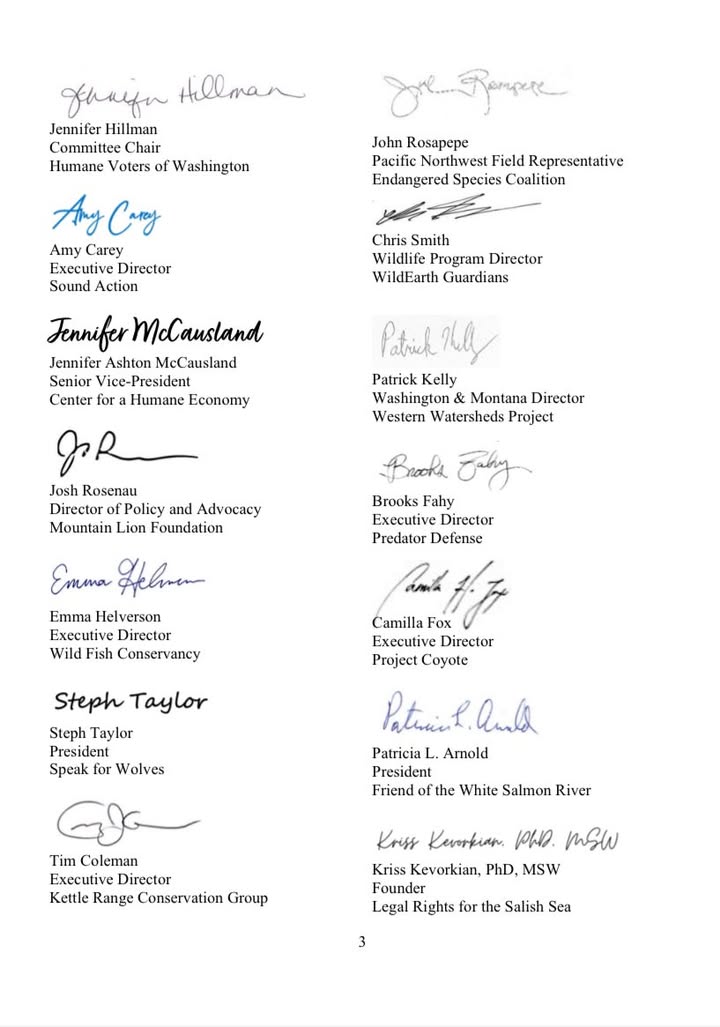 Jennifer Hillman
Jennifer Hillman
Committee Chair
Humane Voters of Washington
Amy Carey
Amy Carey
Executive Director
Sound Action
Jennifer McCausland
Jennifer Ashton McCausland
Senior Vice-President
Center for a Humane Economy
Josh Rosenau
Director of Policy and Advocacy
Mountain Lion Foundation
Emma Helverson
Executive Director
Wild Fish Conservancy
Steph Taylor
Steph Taylor
President
Speak for Wolves
Tim Coleman
Executive Director
Kettle Range Conservation Group
John Rosapepe
Pacific Northwest Field Representative
Endangered Species Coalition
Chris Smith
Wildlife Program Director
WildEarth Guardians
Patrick Kelly
Patrick Kelly
Washington & Montana Director
Western Watersheds Project
Brooks Fahy
Brooks Fahy
Executive Director
Predator Defense
Camilla Fox
Executive Director
Project Coyote
Patricia L. Arnold
Patricia L. Arnold
President
Friend of the White Salmon River
Kriss Kevorkian, PhD, MSW
Kriss Kevorkian, PhD, MSW
Founder
Legal Rights for the Salish Sea
3